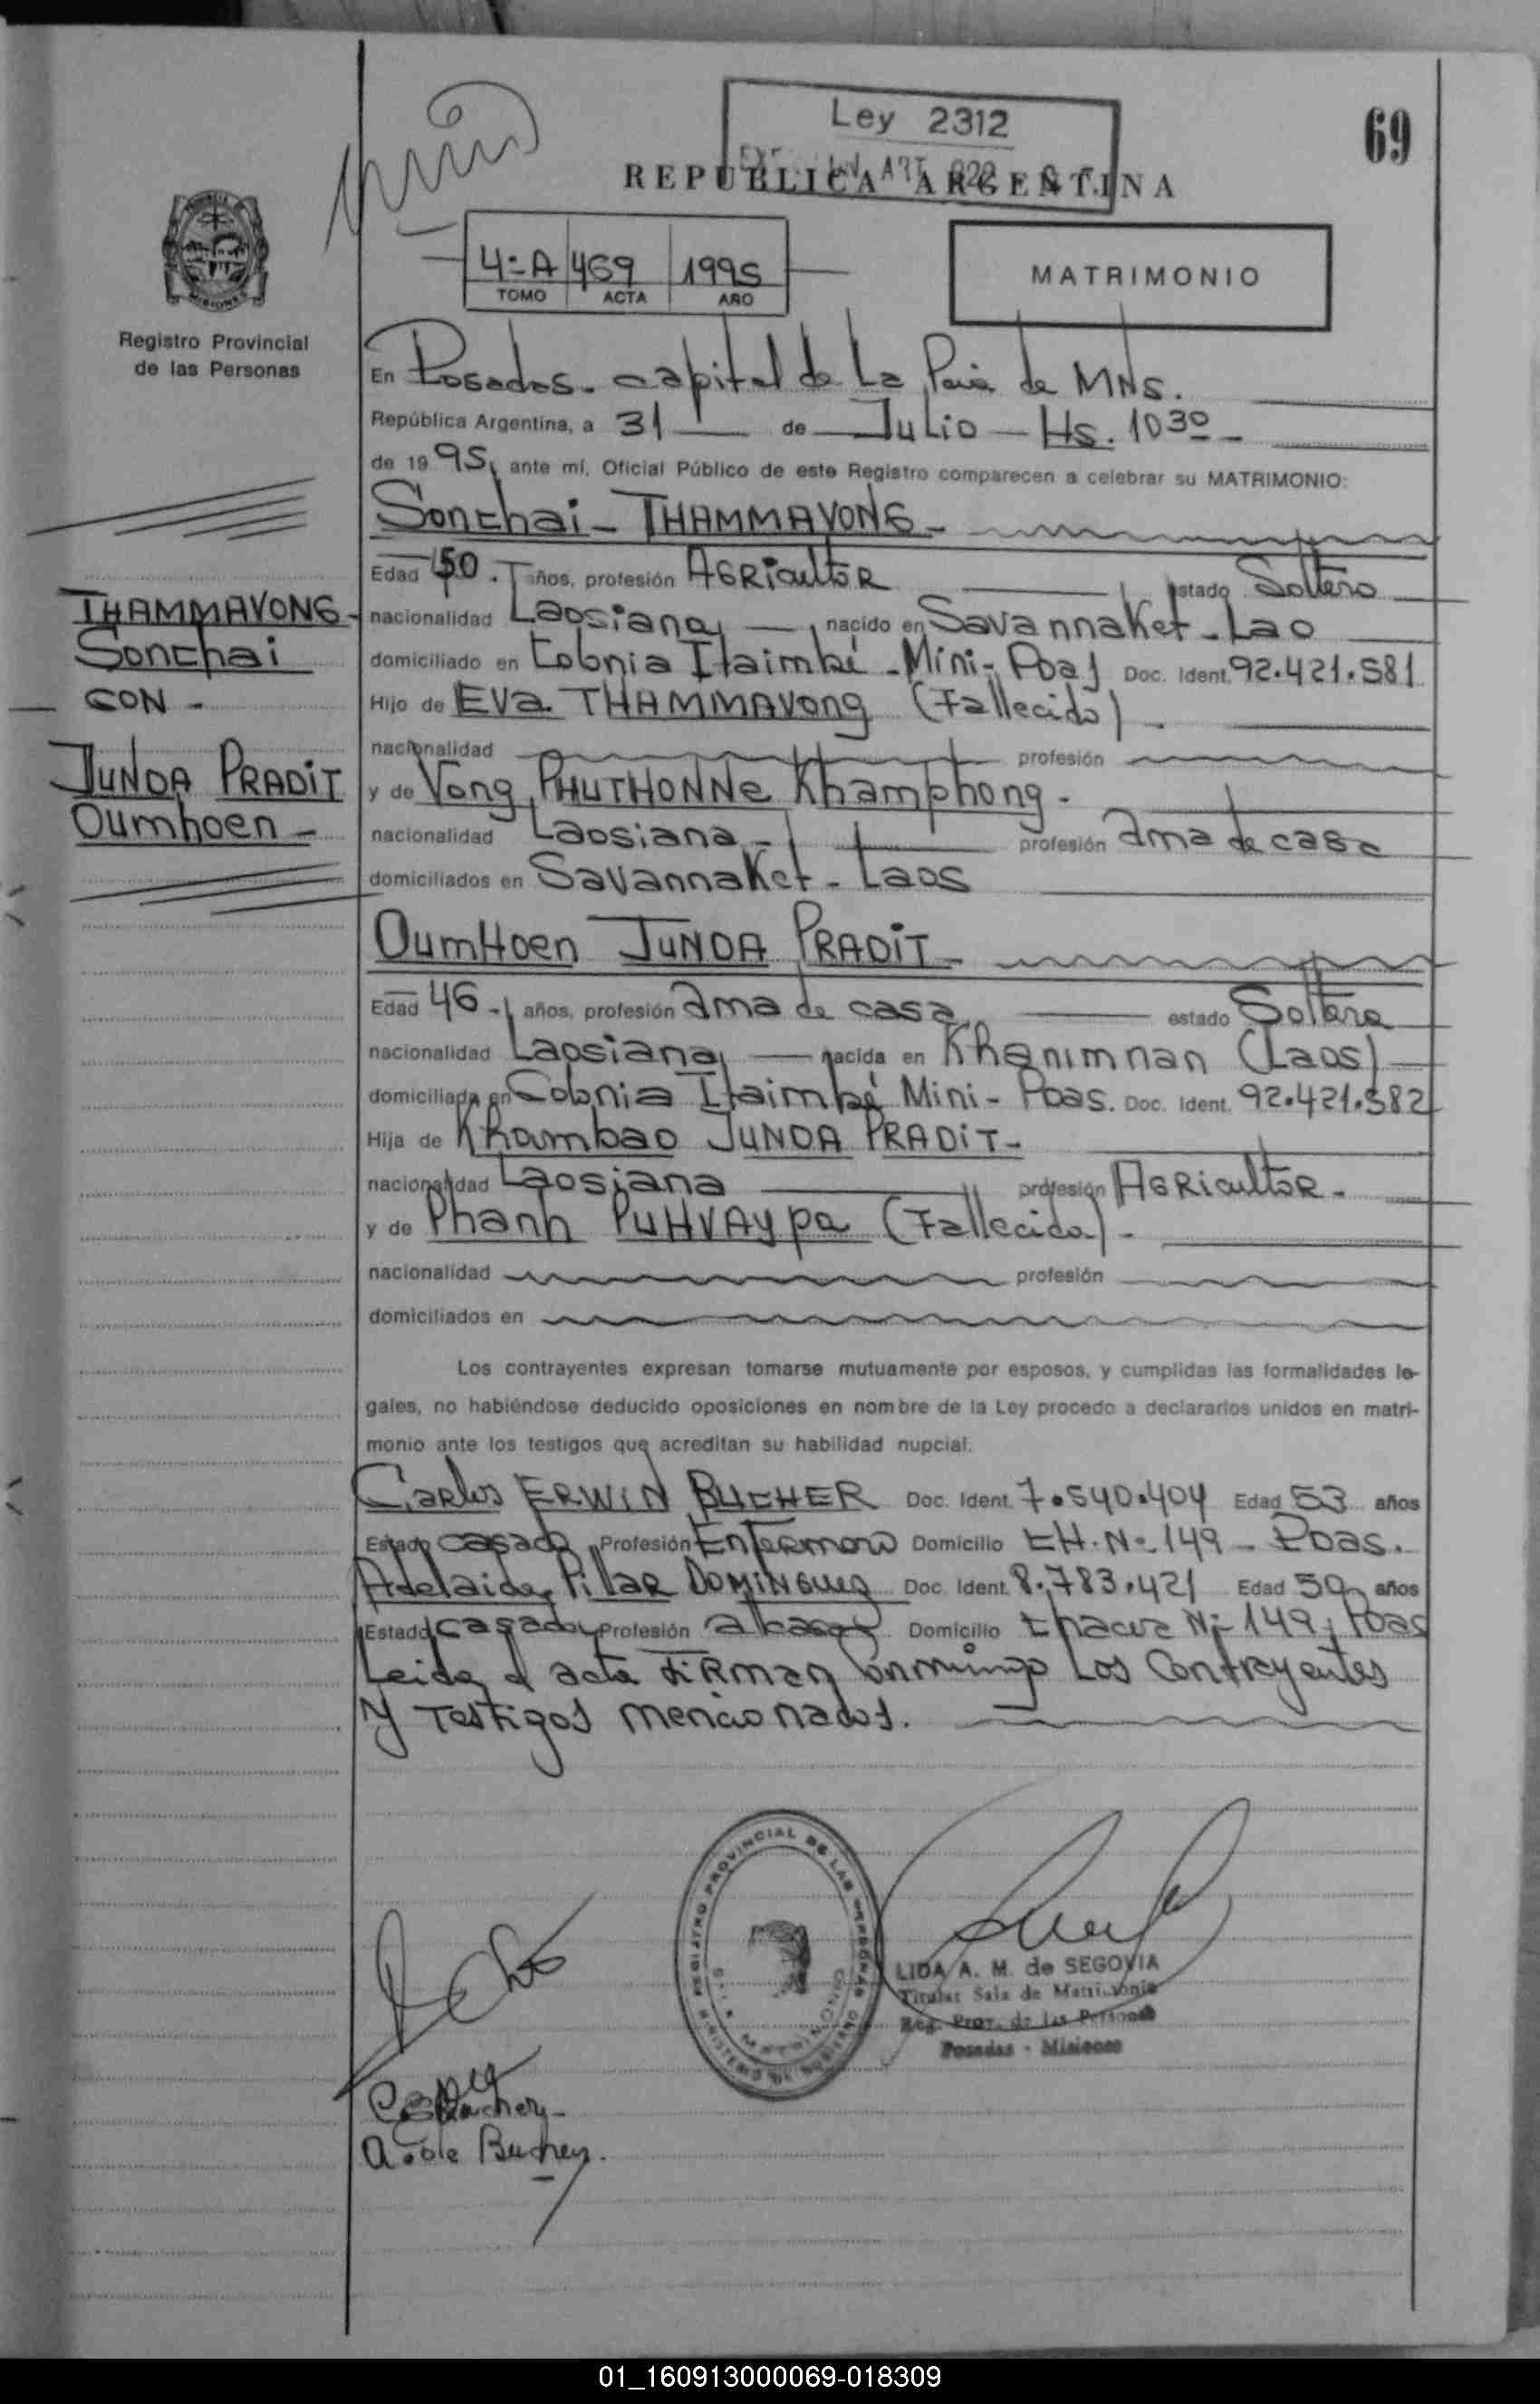 69
Ley 2312
REPUBLICA ARGENTINA
4º A 469 1995
TOMO ACTA AÑO
MATRIMONIO
MISIONES
Registro Provincial
de las Personas
En Posadas - capital de La Pcia de MNS.
República Argentina, a 31 de Julio - Hs. 10 30 -
de 19 95, ante mí, Oficial Público de este Registro comparecen a celebrar su MATRIMONIO:
Sonthai - THAMMAVONG -
Edad 50. años, profesión AGRicultoR estado Soltero
nacionalidad Laosiana, nacido en Savannaket - Lao
domiciliado en Colonia Itaimbé - Mini - Poas Doc. Ident. 92.421.581
Hijo de Eva THAMMAVong (Fallecido) -
nacionalidad profesión
y de Vong PHUTHONNe Khamphong -
nacionalidad Laosiana - profesión ama de casa
domiciliados en Savannaket - Laos
THAMMAVONG -
Sonthai
CON -
JUNDA PRADiT
Oumhoen -
OumHoen JUNDA PRADiT -
Edad 46 - años, profesión ama de casa estado Soltera
nacionalidad Laosiana, nacida en Khanimnan (Laos)
domiciliada en Colonia Itaimbé Mini - Poas. Doc. Ident. 92.421.582
Hija de Khambao JUNDA PRADiT -
nacionalidad Laosiana profesión AGRicultoR -
y de Phanh PUHVAypa (Fallecida) -
nacionalidad profesión
domiciliados en
Los contrayentes expresan tomarse mutuamente por esposos, y cumplidas las formalidades le-
gales, no habiéndose deducido oposiciones en nombre de la Ley procedo a declararlos unidos en matri-
monio ante los testigos que acreditan su habilidad nupcial.
Carlos ERWIN BUCHER Doc. Ident. 7.540.404 Edad 53 años
Estado casado Profesión Enfermero Domicilio CH. Nº 149 - Poas.
Adelaida Pilar DOMINGUEZ Doc. Ident. 8.783.421 Edad 50 años
Estado casada Profesión Domicilio Chacra Nº 149, Poas
Leida el acta FiRman conmigo Los Contrayentes
y Testigos mencionados.
REGISTRO PROVINCIAL DE LAS PERSONAS
MINISTERIO DE GOBIERNO
LIDA A. M. de SEGOVIA
Titular Sala de Matrimonio
Reg. Prov. de las Personas
Posadas - Misiones
Bucher
Bucher
01_160913000069-018309